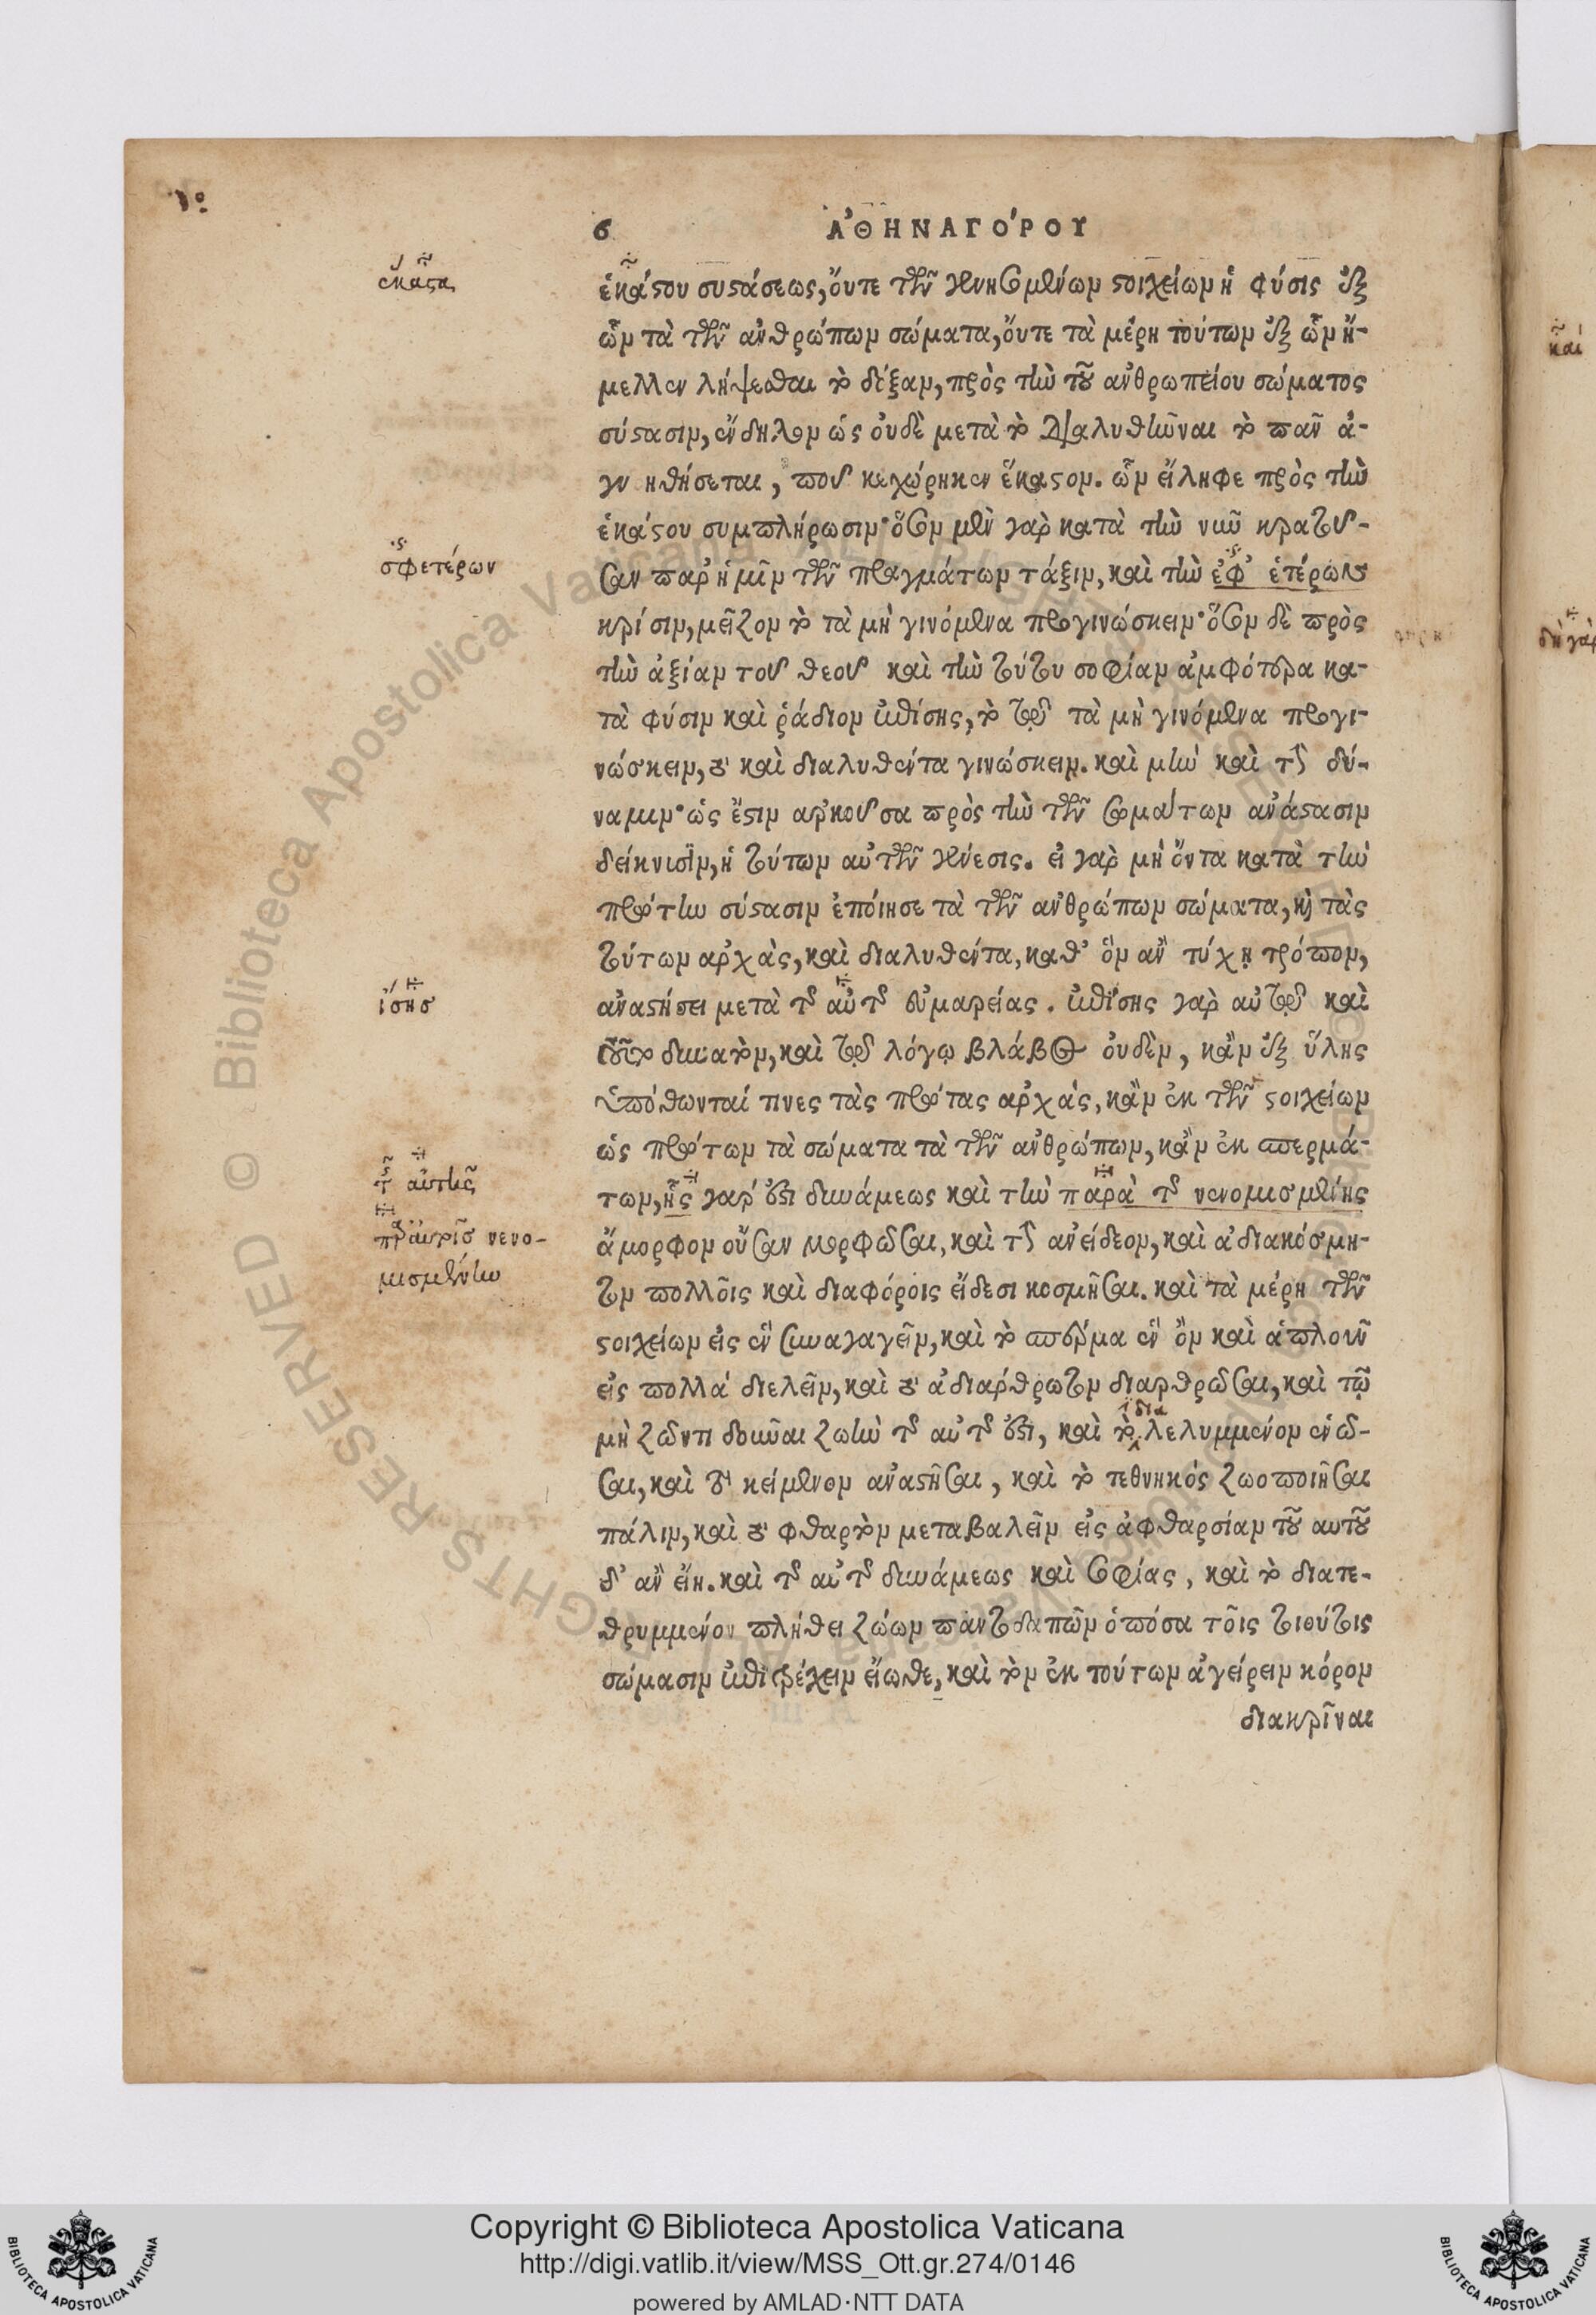 6 ἈΘΗΝΑΓΌΡΟΥ
ἑκάστου συστάσεως, οὔτε τῶν γενησομένων στοιχείων ἡ φύσις ἐξ
ὧν τὰ τῶν ἀνθρώπων σώματα, οὔτε τὰ μέρη τούτων ἐξ ὧν ἤ-
μελλεν λήψεσθαι τὸ δόξαν, πρὸς τὴν τοῦ ἀνθρωπείου σώματος
σύστασιν, εὔδηλον ὡς οὐδὲ μετὰ τὸ διαλυθῆναι τὸ πᾶν ἀ-
γνοηθήσεται, ποῦ κεχώρηκεν ἕκαστον. ὧν εἴληφε πρὸς τὴν
ἑκάστου συμπλήρωσιν· ὅσον μὲν γὰρ κατὰ τὴν νῦν κρατοῦ-
σαν παρ' ἡμῖν τῶν πραγμάτων τάξιν, καὶ τὴν ἐφ' ἑτέρων
κρίσιν, μεῖζον τὸ τὰ μὴ γινόμενα προγινώσκειν· ὅσον δὲ πρὸς
τὴν ἀξίαν τοῦ θεοῦ καὶ τὴν τούτου σοφίαν ἀμφότερα κα-
τὰ φύσιν καὶ ῥάδιον ἐπίσης, τὸ τῷ τὰ μὴ γινόμενα προγι-
νώσκειν, τὸ καὶ διαλυθέντα γινώσκειν. καὶ μὴν καὶ τὴν δύ-
ναμιν· ὡς ἔστιν ἀρκοῦσα πρὸς τὴν τῶν σωμάτων ἀνάστασιν
δείκνυσιν, ἡ τούτων αὐτῶν γένεσις. εἰ γὰρ μὴ ὄντα κατὰ τὴν
πρώτην σύστασιν ἐποίησε τὰ τῶν ἀνθρώπων σώματα, καὶ τὰς
τούτων ἀρχὰς, καὶ διαλυθέντα, καθ' ὃν ἂν τύχῃ τρόπον,
ἀναστήσει μετὰ τῆς αὐτῆς εὐμαρείας. ἐπίσης γὰρ αὐτῷ καὶ
τοῦτο δυνατὸν, καὶ τῷ λόγῳ βλάβος οὐδὲν, κἂν ἐξ ὕλης
ὑπόθωνταί τινες τὰς πρώτας ἀρχάς, κἂν ἐκ τῶν στοιχείων
ὡς πρώτων τὰ σώματα τὰ τῶν ἀνθρώπων, κἂν ἐκ σπερμά-
των, ἧς γάρ ἐστι δυνάμεως καὶ τὴν παρὰ τῆς νενομισμένης
ἄμορφον οὖσαν μορφῶσαι, καὶ τὴν ἀνείδεον, καὶ ἀδιακόσμη-
τον πολλοῖς καὶ διαφόροις εἴδεσι κοσμῆσαι. καὶ τὰ μέρη τῶν
στοιχείων εἰς ἓν συναγαγεῖν, καὶ τὸ σπέρμα ἓν ὂν καὶ ἁπλοῦν
εἰς πολλά διελεῖν, καὶ τὸ ἀδιάρθρωτον διαρθρῶσαι, καὶ τῷ
μὴ ζῶντι δοῦναι ζωὴν τῆς αὐτῆς ἐστι, καὶ τὸ δια λελυμμένον ἑνῶ-
σαι, καὶ τὸ κείμενον ἀναστῆσαι, καὶ τὸ τεθνηκός ζωοποιῆσαι
πάλιν, καὶ τὸ φθαρτὸν μεταβαλεῖν εἰς ἀφθαρσίαν τοῦ αυτοῦ
δ' ἂν εἴη. καὶ τῆς αὐτῆς δυνάμεως καὶ σοφίας, καὶ τὸ διατε-
θρυμμένον πλήθει ζώων παντοδαπῶν ὁπόσα τοῖς τοιούτοις
σώμασιν ἐπιτρέχειν εἴωθε, καὶ τὸν ἐκ τούτων ἀγείρειν κόρον
διακρῖναι
ἕκαστα
σφετέρων
ἴσης
τῆς αὐτῆς
παρ' αὐτοῖς νενο-
μισμένην
καὶ
δὴ γὰρ
Copyright © Biblioteca Apostolica Vaticana
http://digi.vatlib.it/view/MSS_Ott.gr.274/0146
powered by AMLAD·NTT DATA
BIBLIOTECA APOSTOLICA VATICANA
BIBLIOTECA APOSTOLICA VATICANA
© Biblioteca Apostolica Vaticana ALL RIGHTS RESERVED